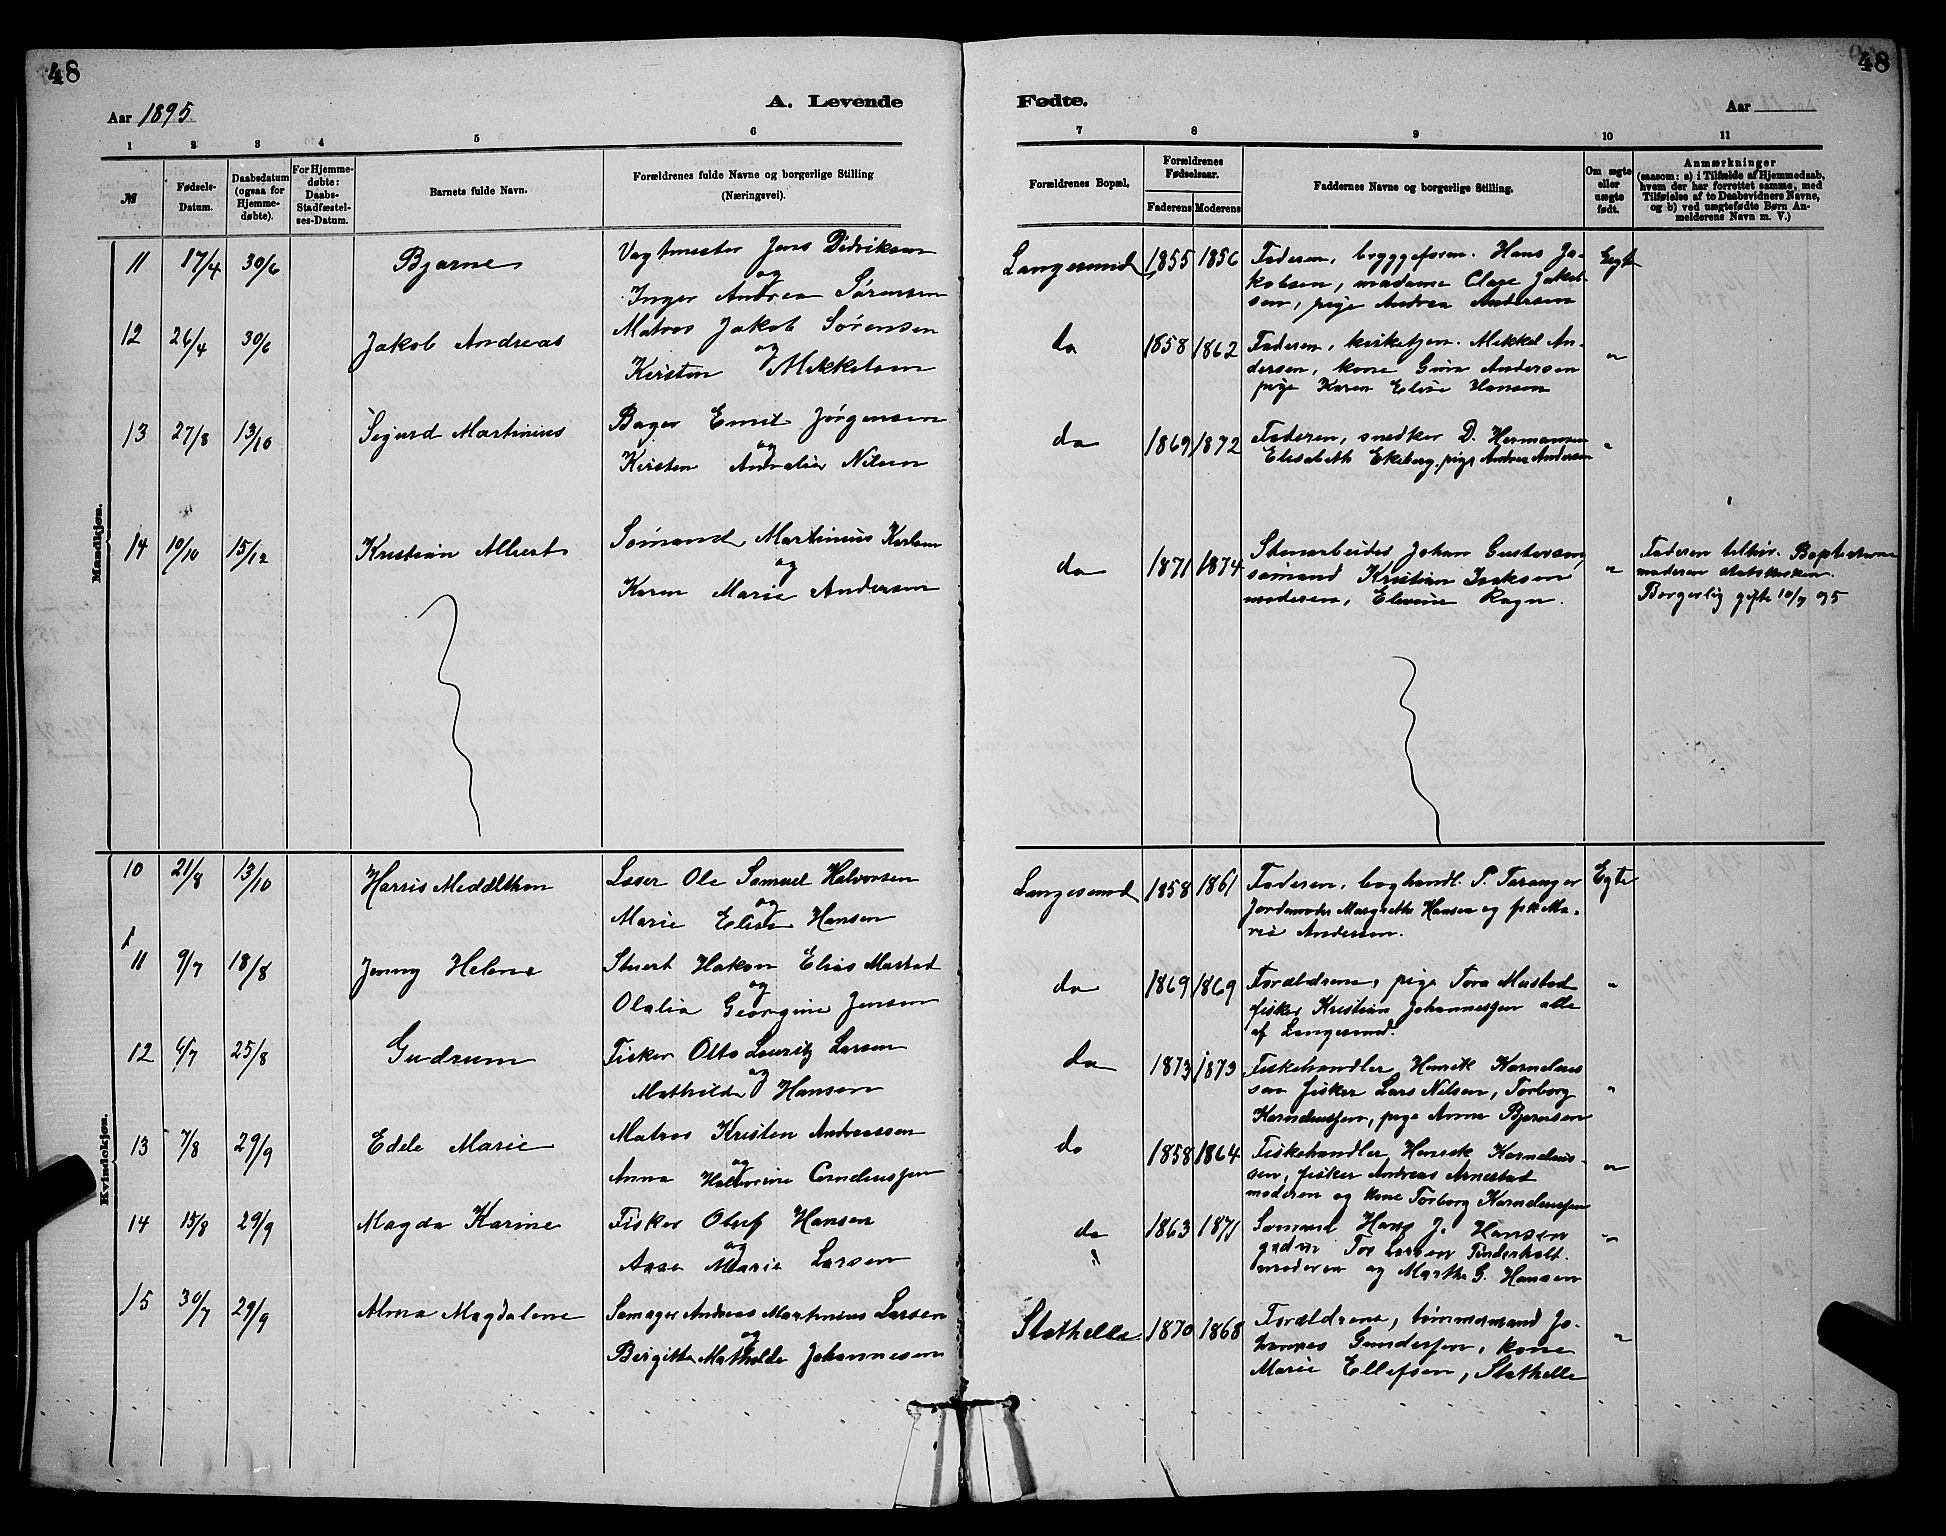 48
48
Aar 1895
A. Levende
Fødte.
Aar
1 2 3 4 5 6 7 8 9 10 11
№
Fødsels-Datum.
Daabsdatum (ogsaa for Hjemme-døbte).
For Hjemme-døbte: Daabs-Stadfæstel-ses-Datum.
Barnets fulde Navn.
Forældrenes fulde Navne og borgerlige Stilling
(Næringsvei).
Forældrenes Bopæl.
Forældrenes Fødselsaar.
Faderens Moderens
Faddernes Navne og borgerlige Stilling.
Om ægte eller uægte født.
Anmærkninger
(saasom: a) i Tilfælde af Hjemmedaab,
hvem der har forrettet samme, med
Tilføielse af to Daabsvidners Navne,
og b) ved uægtefødte Børn An-
melderens Navn m. V.)
Mandkjøn.
11 17/4 30/6 Bjarne
Vagtmester Jens Didriksen
og
Inger Andrea Sørensen
Langesund 1855 1856
Faderen, bryggeform. Hans Ja-
kobsen, madame Clage Jakob-
sen, pige Andrea Andersen
Egte
12 26/4 30/6 Jakob Andreas
Matros Jakob Sørensen
og
Kirsten Mikkelsen
do 1858 1862
Faderen, kirketjen. Mikkel An-
dersen, kone Gina Andersen
pige Karen Elise Hansen
"
13 27/8 13/10 Sigurd Martinius
Bager Emil Jørgensen
og
Kirsten Amalie Nilsen
do 1869 1872
Faderen, snedker D. Hermansen
Elisabeth Ekeberg, pige Andrea Andersen
"
14 10/10 15/12 Kristian Albert
Sømand Martinius Karlsen
og
Karen Marie Andersen
do 1871 1874
Stenarbeider Johan Gustavsen,
sømand Kristian Isaksen
moderen, Elevine Ragn.
"
Faderen tilhør. Baptisterne
moderen statskirken.
Borgerlig gifte 10/7 95
Kvindekjøn.
10 21/8 13/10 Harris Meddelthon
Loser Ole Samuel Halvorsen
og
Marie Elise Hansen
Langesund 1858 1861
Faderen, boghandl. P. Taranger
Jordemoder Margrethe Hansen og frk Ma-
rie Andersen.
Egte
11 9/7 18/8 Jenny Helene
Stuert Hakon Elias Mustad
og
Olalia Georgine Jensen
do 1869 1869
Forældrene, pige Tora Mustad
fisker Kristian Johannessen alle
af Langesund.
"
12 4/7 25/8 Gudrun
Fisker Otto Lauritz Larsen
og
Mathilde Hansen
do 1873 1873
Fiskehandler Henrik Kornelius
sen fisker Lars Nilsen, Torborg
Korneliussen, pige Anna Bjørnsen
"
13 7/8 29/9 Edele Marie
Matros Kristen Andreassen
og
Anna Halvorine Corneliussen
do 1858 1864
Fiskehandler Henrik Kornelius-
sen, fisker Andreas Arnestad
moderen og kone Torborg Korneliussen
"
14 15/8 29/9 Magda Karine
Fisker Oluf Hansen
og
Aase Marie Larsen
do
" 1863 1871
Sømand Hans J. Hansen
Tor Larsen
moderen og Marthe G. Hansen
"
15 30/7 29/9 Alma Magdalene
Andreas Martinius Larsen
og
Birgitte Mathilde Johannesen
Stathelle 1870 1868
Forældrene, tømmermand Jo-
hannes Gundersen, kone
Marie Ellefsen, Stathelle
"